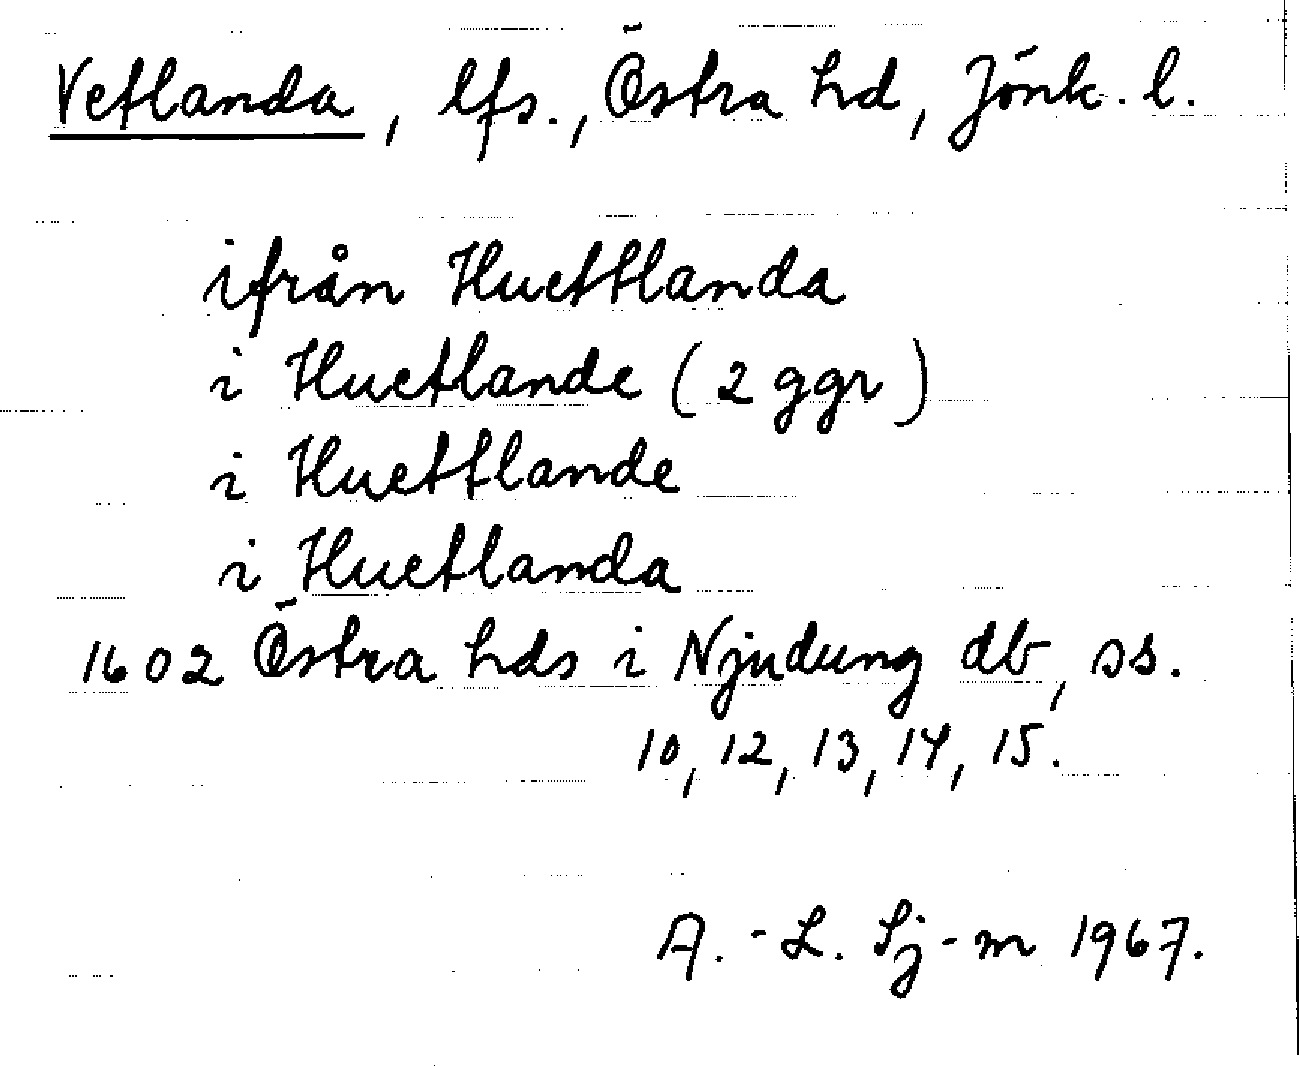 Vetlanda, lfs., Östra hd, Jönk. l.
ifrån Huettlanda
i Huetlande (2 ggr)
i Huettlande
i Huetlanda
1602 Östra hds i Njudung db, ss.
10, 12, 13, 14, 15.
A.-L. Sj-m 1967.